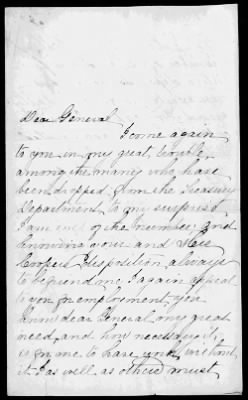 Dear General
I come again
to you in my great trouble,
among the many who have
been dropped from the Treasury
Department, to my surprise
I am one of the number, and
knowing your and
Coopers disposition always
to befriend me I again appeal
to you for employment, you
know dear General my great
need, and how necessary it
is for me to have work, without
it I as well as others must